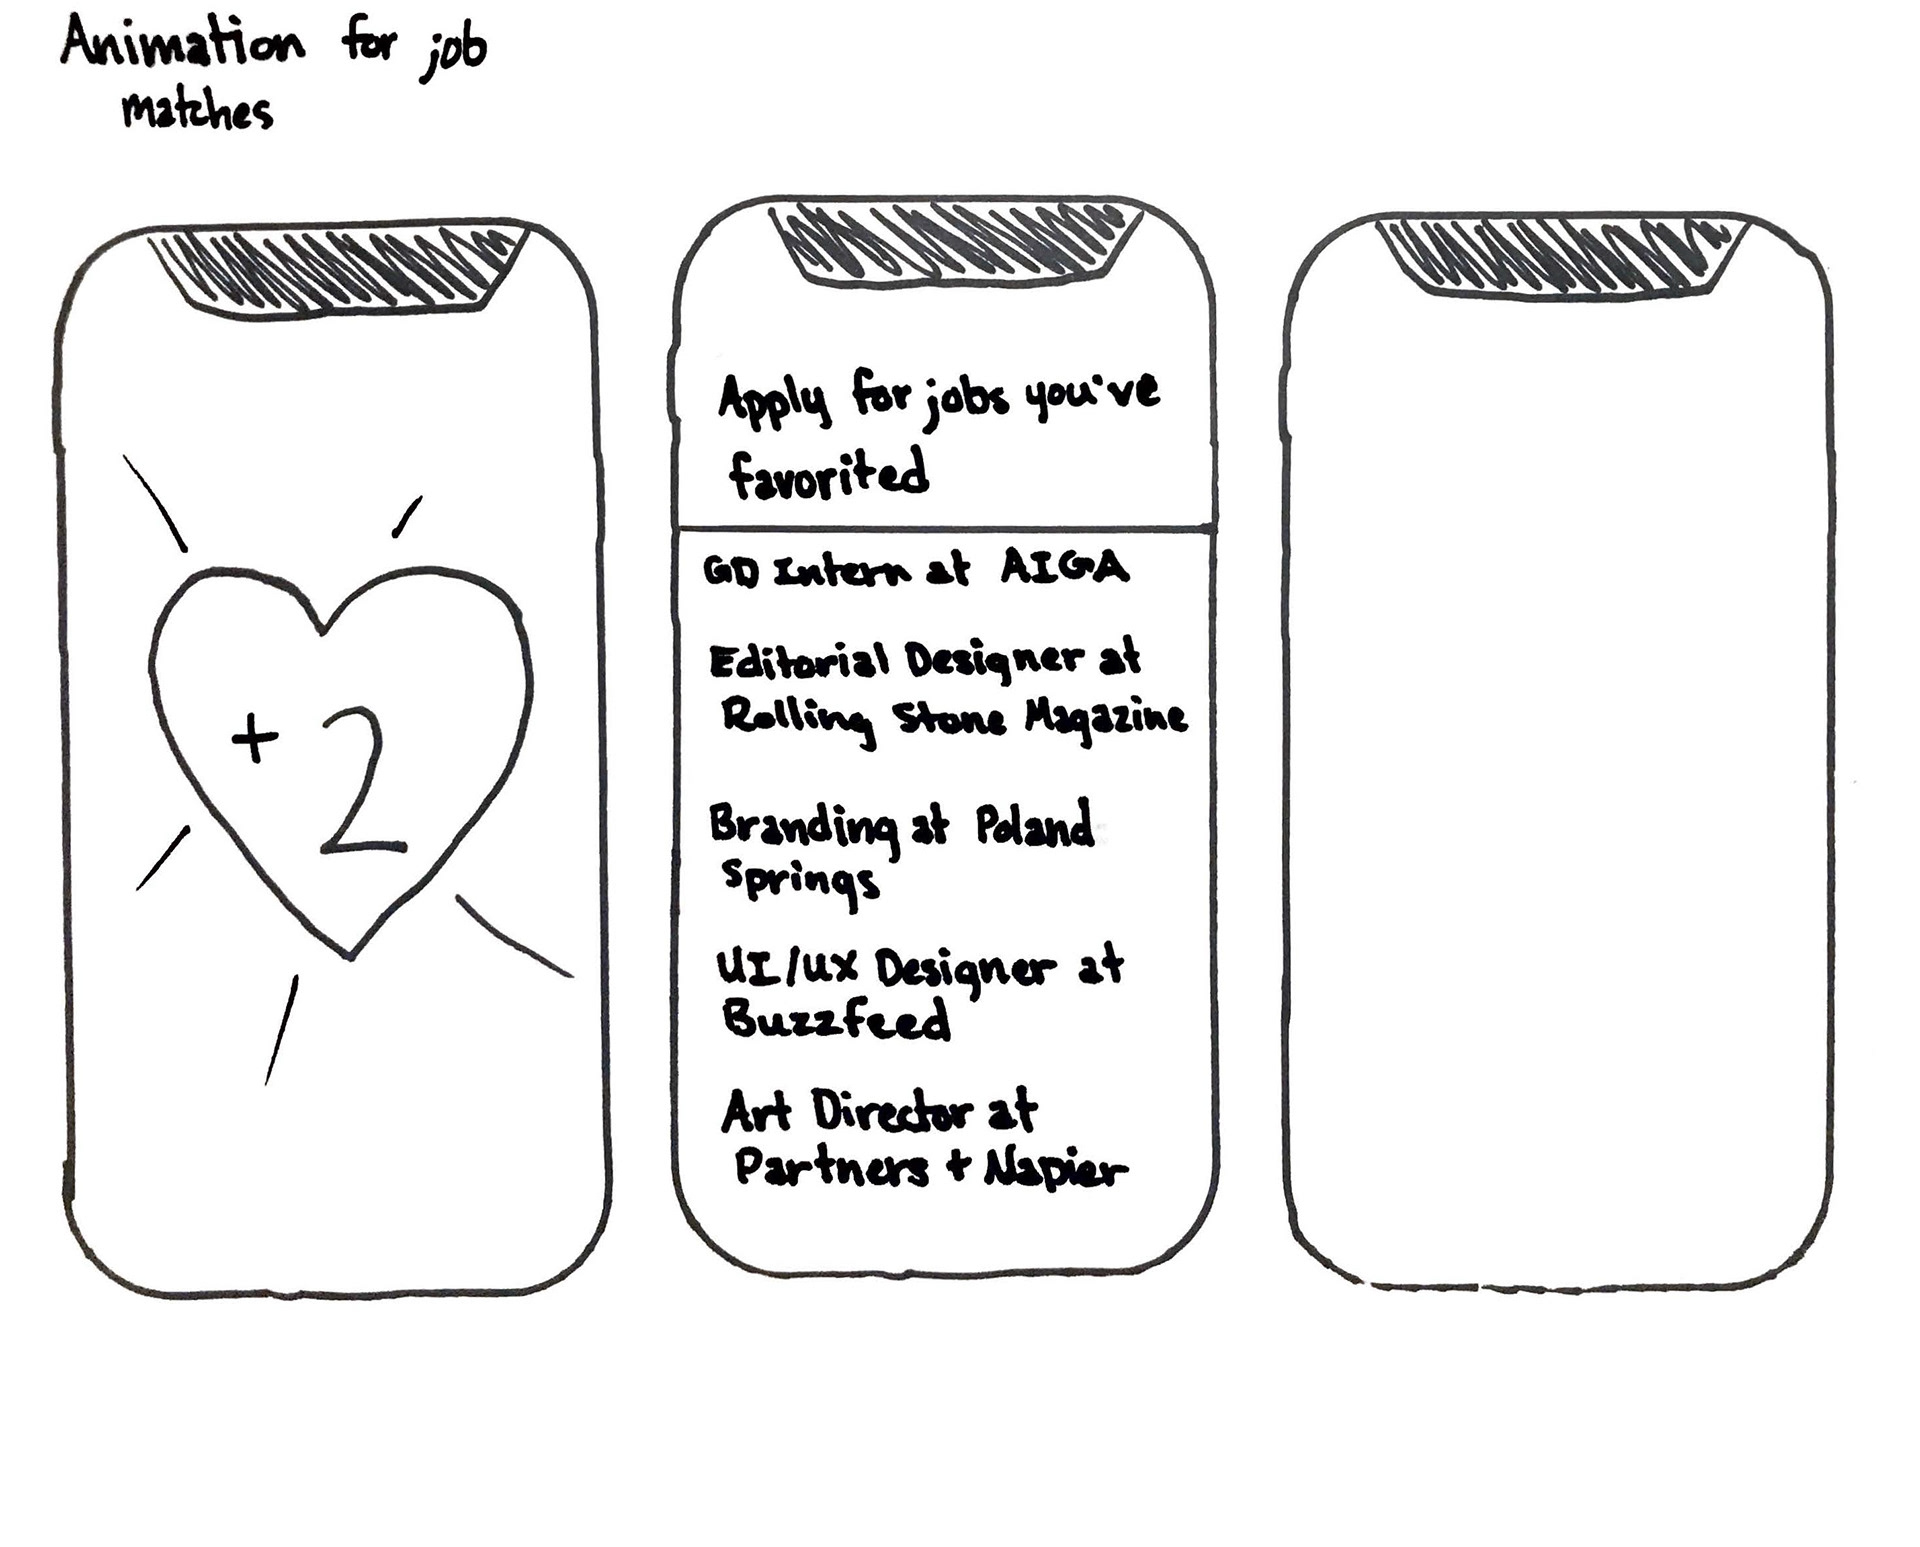 Animation for job
matches
+ 2
Apply for jobs you've
favorited
GD Intern at AIGA
Editorial Designer at
Rolling Stone Magazine
Branding at Poland
Springs
UI/UX Designer at
Buzzfeed
Art Director at
Partners + Napier